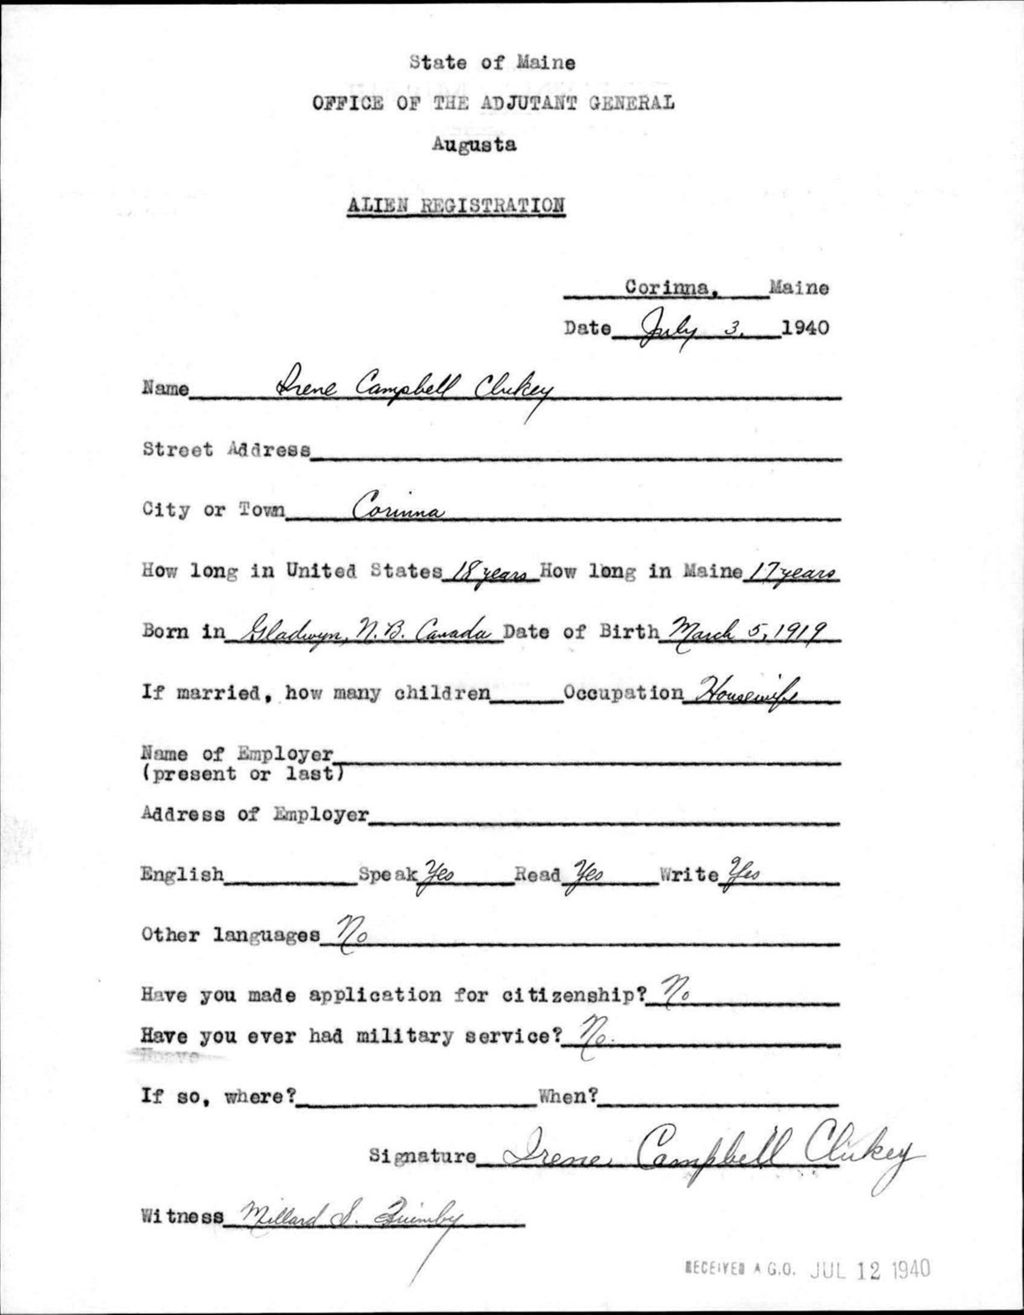 State of Maine
OFFICE OF THE ADJUTANT GENERAL
Augusta
ALIEN REGISTRATION
Corinna, Maine
Date July 3, 1940
Name Irene Campbell Clukey
Street Address
City or Town Corinna
How long in United States 18 years How long in Maine 17 years
Born in Gladwyn, N.B. Canada Date of Birth March 5, 1919
If married, how many children Occupation Housewife
Name of Employer
(present or last)
Address of Employer
English Speak Yes Read Yes Write Yes
Other languages No
Have you made application for citizenship? No
Have you ever had military service? No.
If so, where? When?
Signature Irene Campbell Clukey
Witness Millard S. Quimby
RECEIVED A.G.O. JUL 12 1940